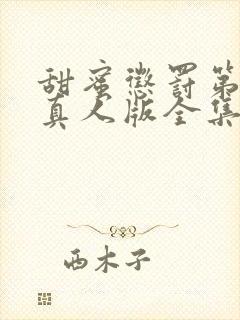 甜蜜懲罰第
真人版全集
西木子